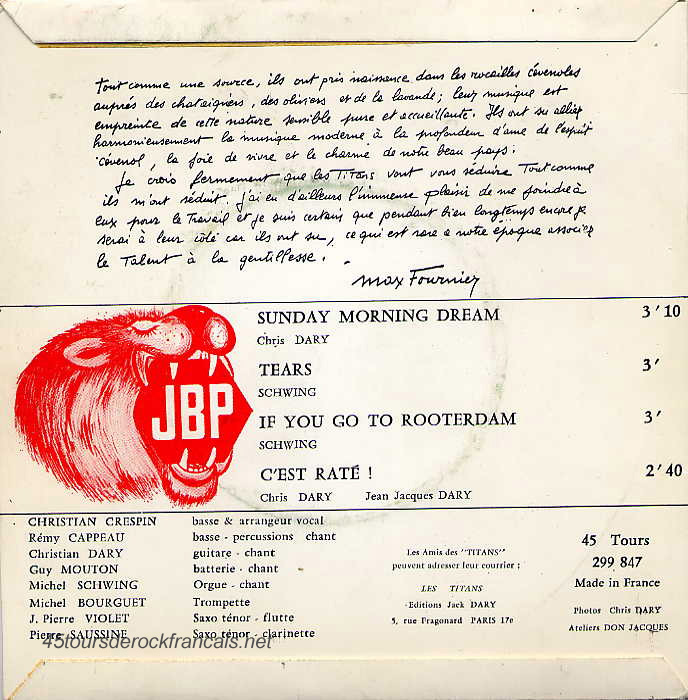 Tout comme une source, ils ont pris naissance dans les rocailles cévenoles
auprès des chataigniers, des oliviers et de la lavande; leur musique est
empreinte de cette nature sensible pure et accueillante. Ils ont su allier
harmonieusement la musique moderne à la profondeur d'ame de l'esprit
cévenol, la joie de vivre et le charme de notre beau pays.
Je crois fermement que les Titans vont vous séduire Tout comme
ils m'ont séduit. j'ai eu d'ailleurs l'immense plaisir de me joindre à
eux pour le Travail et je suis certain que pendant bien longtemps encore je
serai à leur côté car ils ont su, ce qui est rare a notre époque associer
le Talent à la gentillesse.
Max Fournier
SUNDAY MORNING DREAM 3'10
Chris DARY
TEARS 3'
SCHWING
IF YOU GO TO ROOTERDAM 3'
SCHWING
C'EST RATÉ ! 2'40
Chris DARY Jean Jacques DARY
JBP
CHRISTIAN CRESPIN basse & arrangeur vocal
Rémy CAPPEAU basse - percussions chant
Christian DARY guitare - chant
Guy MOUTON batterie - chant
Michel SCHWING Orgue - chant
Michel BOURGUET Trompette
J. Pierre VIOLET Saxo ténor - flutte
Pierre SAUSSINE Saxo ténor - clarinette
Les Amis des "TITANS"
peuvent adresser leur courrier ;
LES TITANS
Editions Jack DARY
5, rue Fragonard PARIS 17e
45 Tours
299 847
Made in France
Photos Chris DARY
Ateliers DON JACQUES
45toursderockfrancais.net